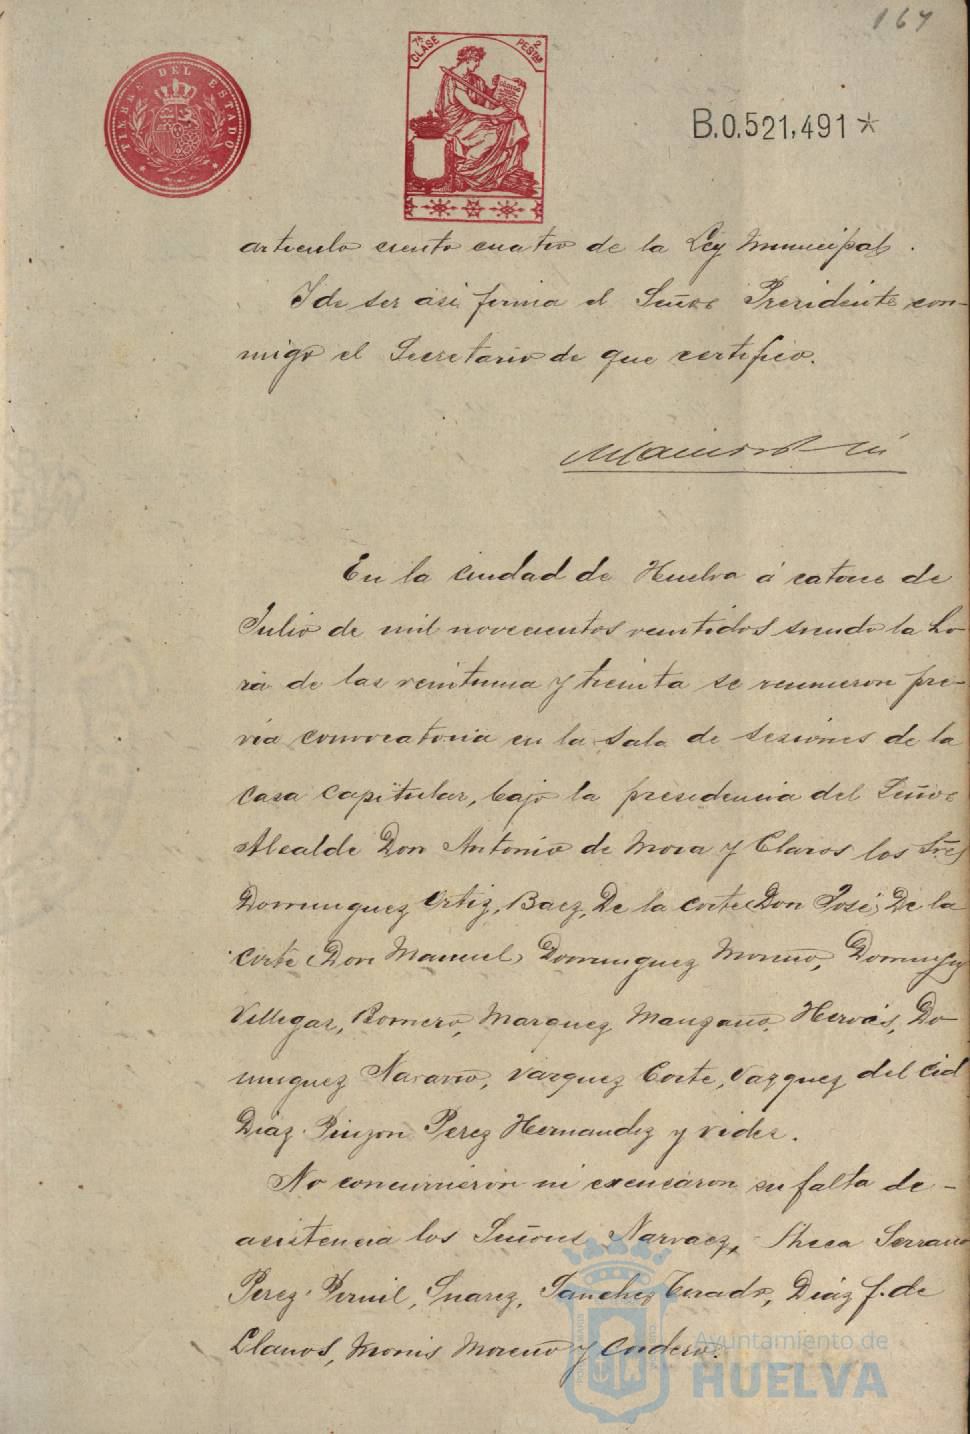 167
TIMBRE DEL ESTADO
7ª CLASE
2 PESTAS
B.0.521,491*
articulo ciento cuatro de la Ley Municipal.
I de ser asi firma el Señor Presidente con-
migo el Secretario de que certifico.
En la ciudad de Huelva á catorce de
Julio de mil novecientos veintidos siendo la ho-
ra de las veintiuna y treinta se reunieron pre-
via convocatoria en la sala de sesiones de la
Casa Capitular, bajo la presidencia del Señor
Alcalde Don Antonio de Mora y Claros los Sres
Dominguez Ortiz, Baez, De la Corte (Don José) De la
Corte (Don Manuel) Dominguez Moreno, Doming
Villegas, Romero, Marquez, Manzano, Hervás, Do-
minguez Navarro, Vazquez Corte, Vazquez del Cid
Diaz Pinzon Perez Hernandez y Vides.
No concurrieron ni excusaron su falta de-
asistencia los Señores Narvaez, Checa Serrano
Perez Pernil, Suarez, Sanchez Terado, Diaz f. de
Llanos, Monis Moreno y Cordero.
Ayuntamiento de
HUELVA